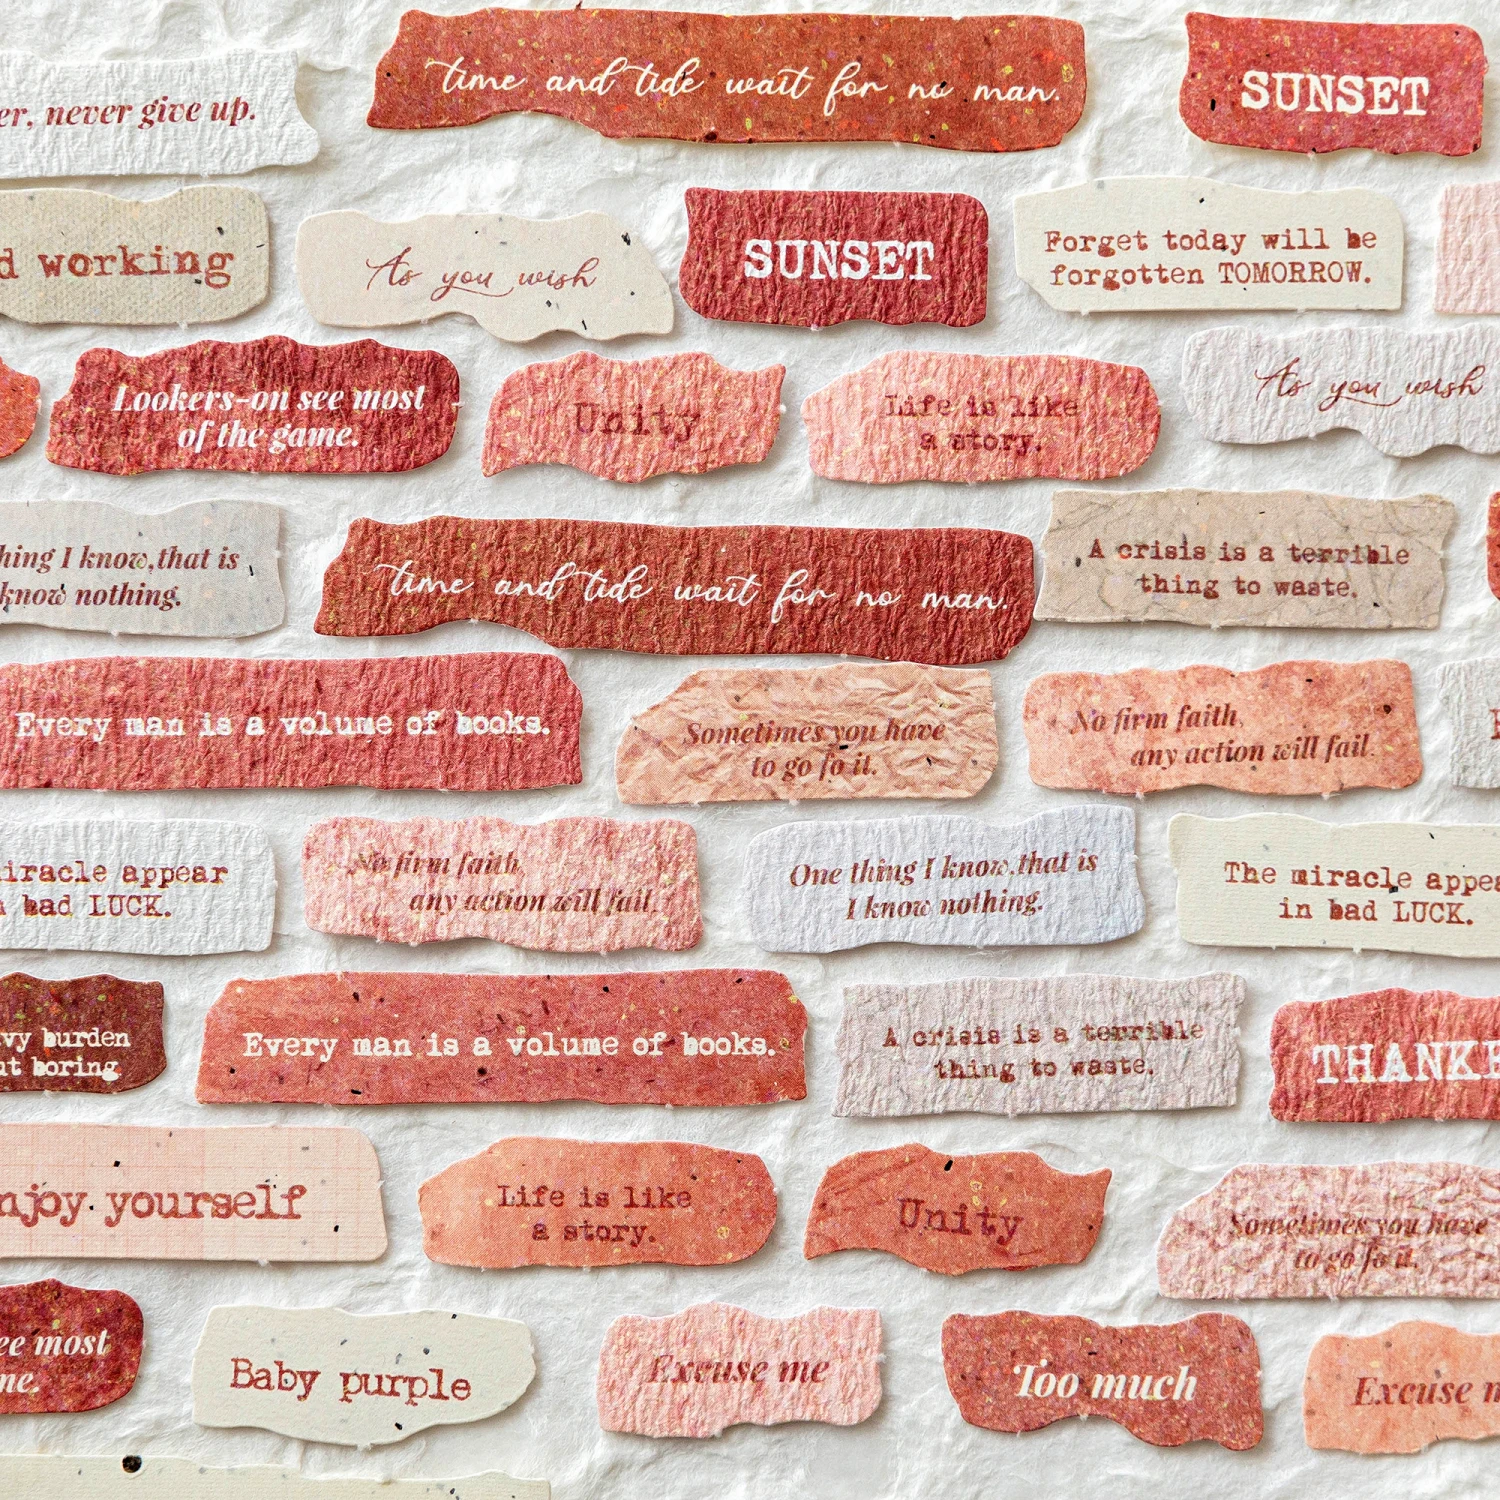 er, never give up.
time and tide wait for no man.
SUNSET
d working
As you wish
SUNSET
Forget today will be
forgotten TOMORROW.
Lookers-on see most
of the game.
Unity
Life is like
a story.
As you wish
hing I know,that is
know nothing.
time and tide wait for no man.
A crisis is a terrible
thing to waste.
Every man is a volume of books.
Sometimes you have
to go fo it.
No firm faith,
any action will fail.
iracle appear
bad LUCK.
No firm faith,
any action will fail.
One thing I know,that is
I know nothing.
The miracle appea
in bad LUCK.
vy burden
ut boring
Every man is a volume of books.
A crisis is a terrible
thing to waste.
THANKE
njoy yourself
Life is like
a story.
Unity
Sometimes you have
to go fo it.
ee most
me.
Baby purple
Excuse me
Too much
Excuse m